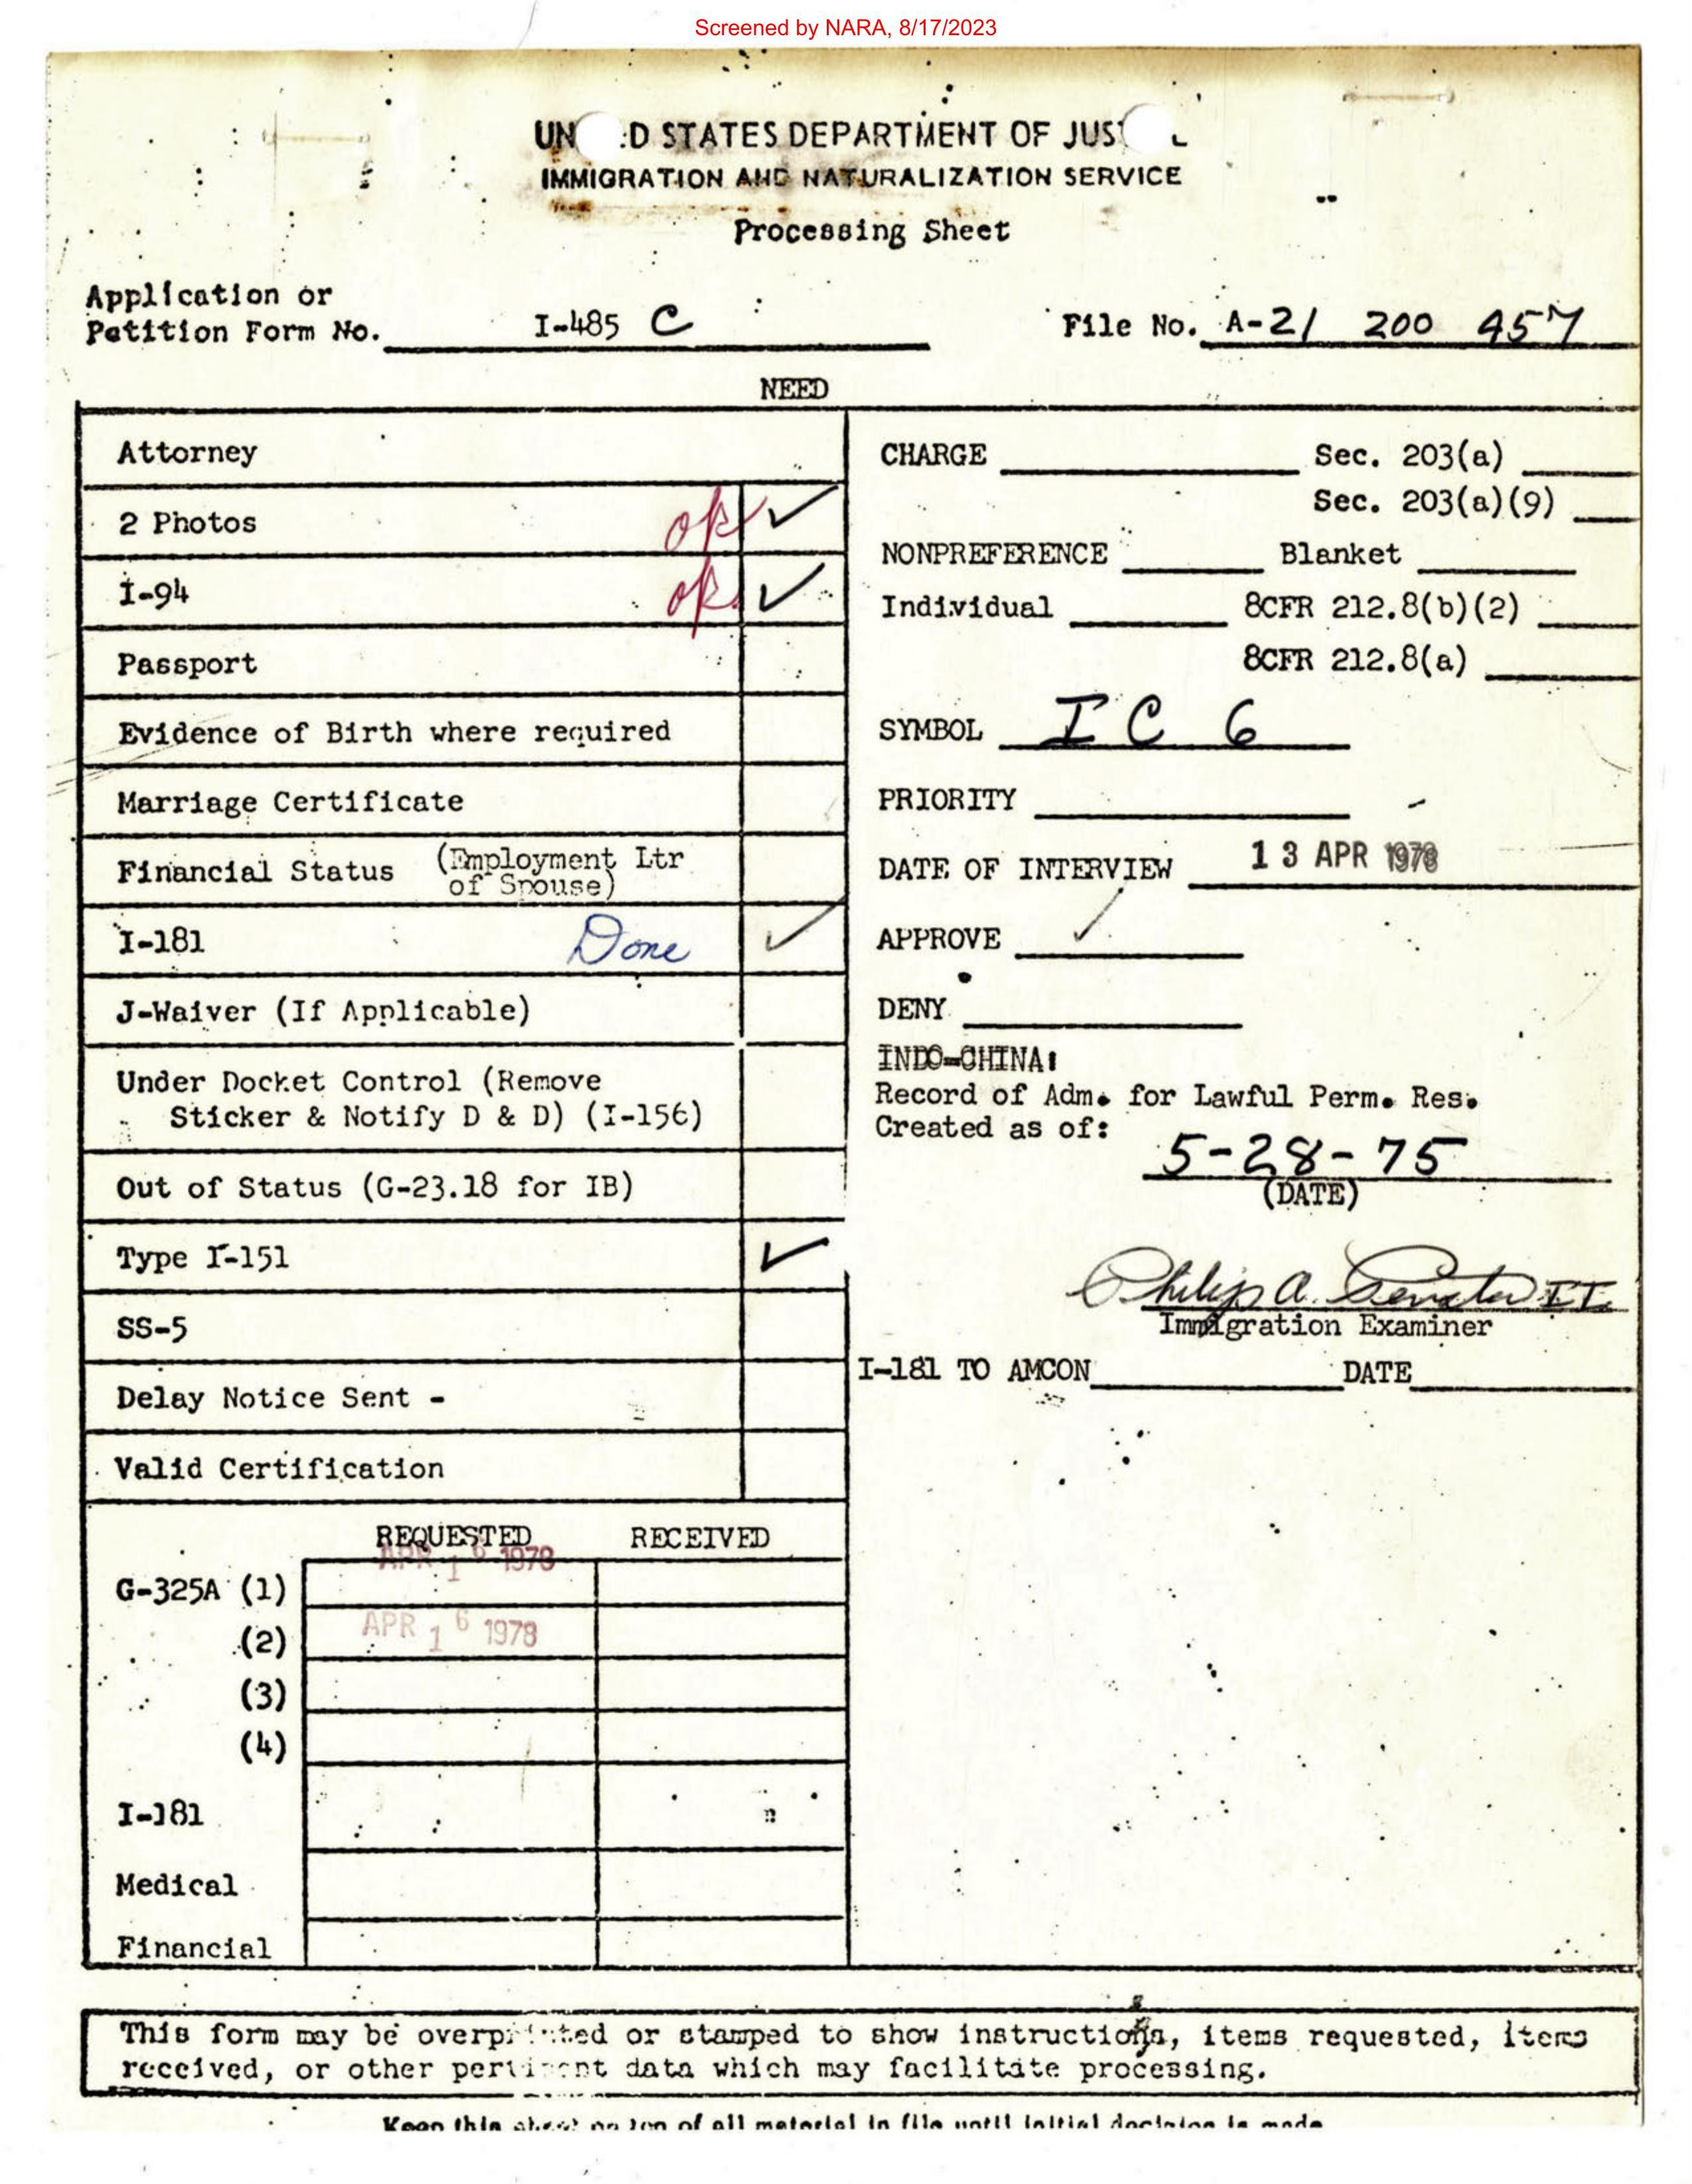 Screened by NARA, 8/17/2023
STATES DEPARTMENT OF
IMMIGRATION AND NATURALIZATION SERVICE
Processing Sheet
Application or
Petition Form No. I-485 C
File No. A-21 200 457
NEED
Attorney
2 Photos ok ✓
I-94 ok ✓
Passport
Evidence of Birth where required
Marriage Certificate
Financial Status (Employment Ltr
of Spouse)
I-181 Done ✓
J-Waiver (If Applicable)
Under Docket Control (Remove
Sticker & Notify D & D) (I-156)
Out of Status (G-23.18 for IB)
Type I-151 ✓
SS-5
Delay Notice Sent -
Valid Certification
REQUESTED RECEIVED
APR 16 1978
G-325A (1)
(2) APR 16 1978
(3)
(4)
I-181
Medical
Financial
CHARGE Sec. 203(a)
Sec. 203(a)(9)
NONPREFERENCE Blanket
Individual 8CFR 212.8(b)(2)
8CFR 212.8(a)
SYMBOL I C 6
PRIORITY
DATE OF INTERVIEW 13 APR 1978
APPROVE ✓
DENY
INDO-CHINA:
Record of Adm. for Lawful Perm. Res.
Created as of:
5-28-75
(DATE)
Philip A. II
Immigration Examiner
I-181 TO AMCON DATE
This form may be overprinted or stamped to show instructions, items requested, items
received, or other pertinent data which may facilitate processing.
Keep this sheet on top of all material in file until initial decision is made